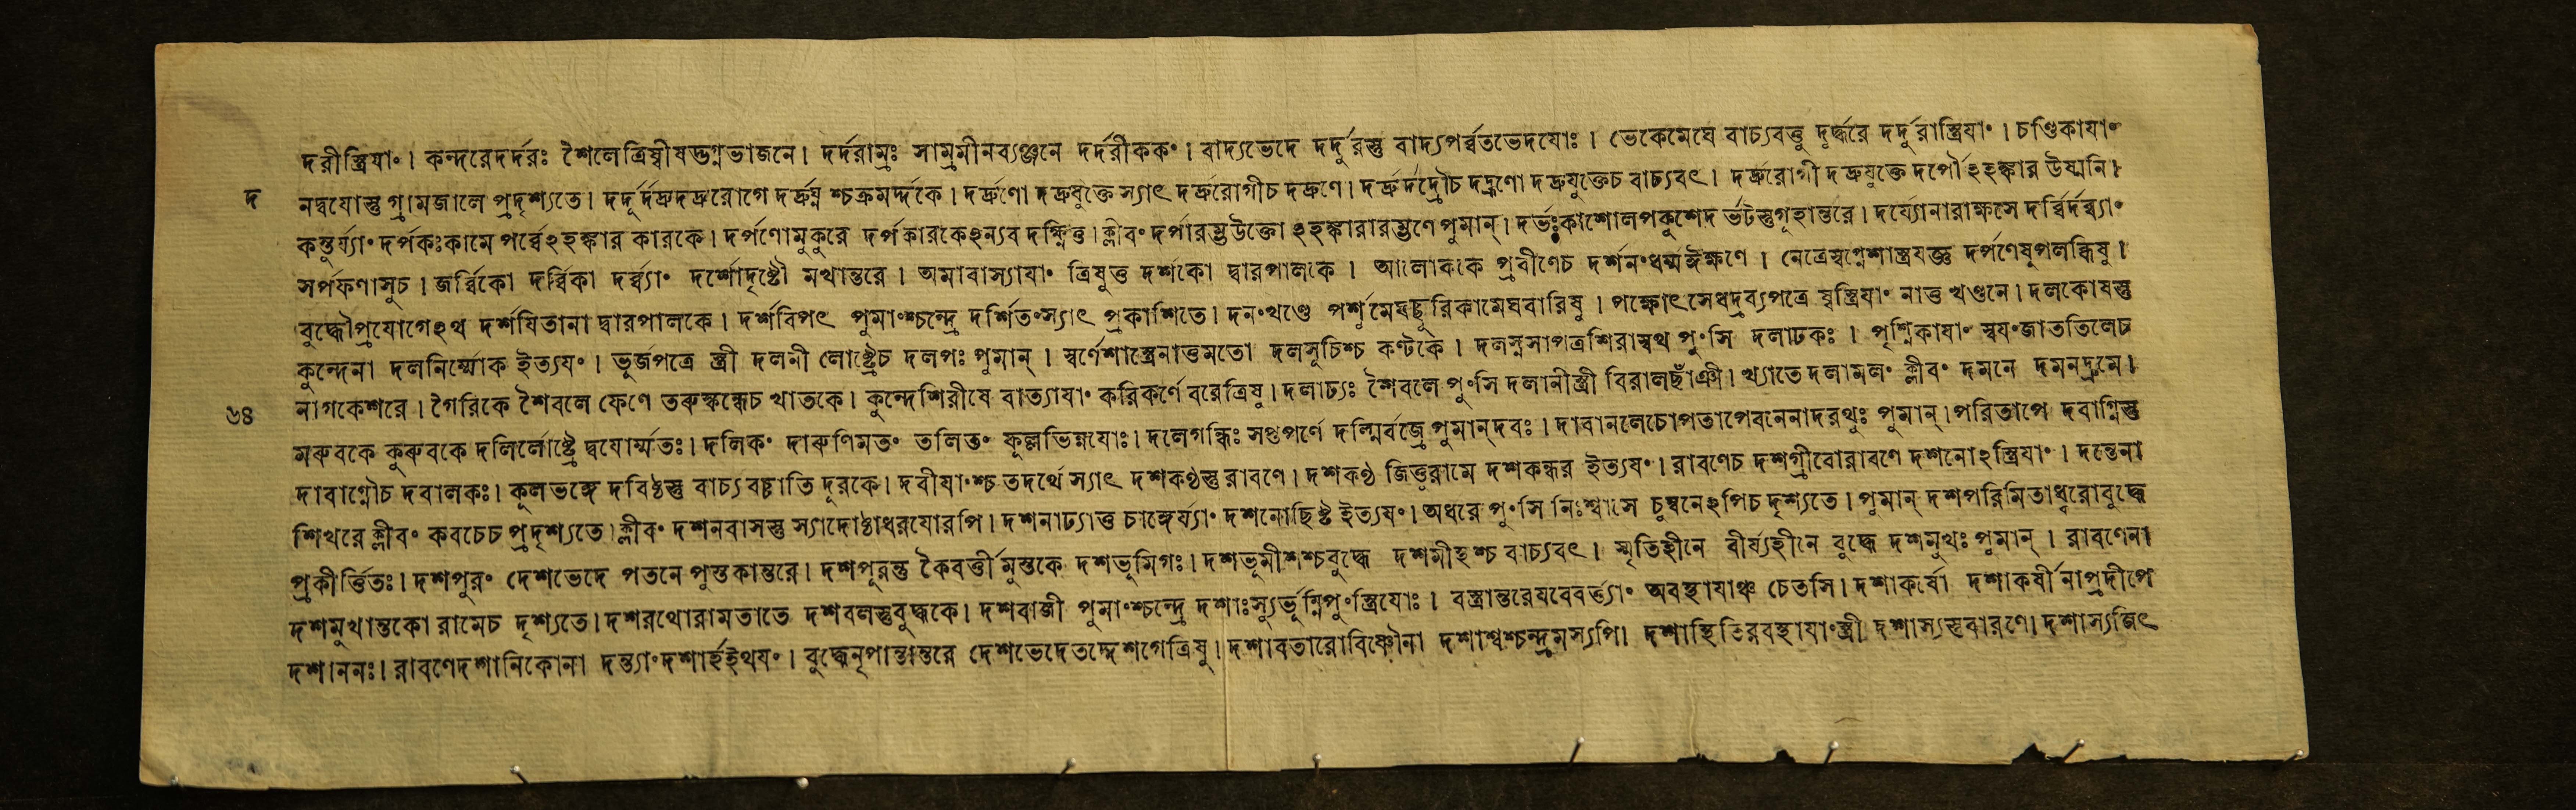 দরীস্ত্রিযা০। কন্দরেদর্দরঃ শৈলেত্রিষ্বীষদ্ভগ্নভাজনে। দর্দরাম্রঃ সাম্রমীনব্যঞ্জনে দর্দরীকক০। বাদ্যভেদে দর্দুরস্তু বাদ্যপর্ব্বতভেদযোঃ। ভেকেমেঘে বাচ্যবত্তু দূর্দ্ধরে দর্দুরাস্ত্রিযা০। চণ্ডিকাযা০
দ
নদ্বযোস্তু গ্রামজালে প্রদৃশ্যতে। দর্দূর্দদ্রুদর্দ্রুরোগে দর্দ্রুঘ্ন শ্চক্রমর্দ্দকে। দর্দ্রুণো দদ্রুযুক্তে স্যাৎ দর্দ্রুরোগীচ দদ্রুণে। দর্দ্রুর্দদ্রৌচ দদ্রূণো দদ্রুযুক্তেচ বাচ্যবৎ। দর্দ্রুরোগী দদ্রুযুক্তে দর্পোঽহঙ্কার উষ্মনি।
কস্তুর্য্যা০ দর্পকঃকামে পর্ব্বেঽহঙ্কার কারকে। দর্পণোমুকুরে দর্পকারকেঽন্যব দক্ষ্মিন্তু। ক্লীব০ দর্পারম্ভউক্তো ঽহঙ্কারারম্ভণে পুমান্। দর্ভঃকাশোলপকুশেদ র্ভটস্তুগৃহান্তরে। দর্য্যোনারাক্ষসে দর্ব্বির্দর্ব্ব্যা০
সর্পফণাসুচ। জর্ব্বিকো দর্ব্বিকা দর্ব্ব্যা০ দর্শোদৃষ্টৌ মখান্তরে। অমাবাস্যাযা০ ত্রিষুত্ত দর্শকো দ্বারপালকে। আলোককে প্রবীণেচ দর্শন০ধর্ম্মঈক্ষণে। নেত্রেস্বপ্নেশাস্ত্রযজ্ঞ দর্পণেষুপলব্ধিষু।
বুদ্ধৌপ্রযোগেঽথ দর্শযিতানা দ্বারপালকে। দর্শবিপৎ পুমা০শ্চন্দ্রে দর্শিত০স্যাৎ প্রকাশিতে। দল০খণ্ডে পর্শূমেঘছুরিকামেঘবারিষু। পঙ্কোৎসেধদ্রব্যপত্রে ষ্বস্ত্রিযা০ নাত্ত খণ্ডনে। দলকোষস্তু
কুন্দেনা দলনির্ম্মোক ইত্যয০। ভুর্জপত্রে স্ত্রী দলনী লোষ্ট্রেচ দলপঃ পুমান্। স্বর্ণেশাস্ত্রেনাত্তমতো দলসুচিশ্চ কণ্টকে। দলস্নসাপত্রশিরাস্বথ পু০সি দলাঢকঃ। পৃশ্নিকাযা০ স্বয০জাততিলেচ
৬৪
নাগকেশরে। গৈরিকে শৈবলে ফেণে তরুস্কন্ধেচ খাতকে। কুন্দেশিরীষে বাত্যাযা০ করিকর্ণে বরেত্রিষু। দলাঢ্যঃ শৈবলে পু০সি দলানীস্ত্রী বিরালছাঁঞী। খ্যাতে দলামল০ ক্লীব০ দমনে দমনদ্রুমে।
মরুবকে কুরুবকে দলির্লোষ্ট্রে দ্বযোর্ম্মতঃ। দলিক০ দারুণিমত০ তলিত০ ফুল্লভিন্নযোঃ। দলেগন্ধিঃ সপ্তপর্ণে দল্মির্বজ্রে পুমান্দবঃ। দাবানলেচোপতাপেবনেনাদরথুঃ পুমান্। পরিতাপে দবাগ্নিস্তু
দাবাগ্নৌচ দবালকঃ। কুলভঙ্গে দবিষ্ঠস্তু বাচ্যবচ্চাতি দূরকে। দবীযা০শ্চ তদর্থে স্যাৎ দশকণ্ঠস্তু রাবণে। দশকণ্ঠ জিত্তুরামে দশকন্ধর ইত্যয০। রাবণেচ দশগ্রীবোরাবণে দশনোঽস্ত্রিযা০। দন্তেনা
শিখরে ক্লীব০ কবচেচ প্রদৃশ্যতে। ক্লীব০ দশনবাসস্তু স্যাদোষ্ঠাধরযোরপি। দশনাঢ্যাত্ত চাঙ্গের্য্যা০ দশনোছিষ্ট ইত্যয০। অধরে পু০সি নিঃশ্বাসে চুম্বনেঽপিচ দৃশ্যতে। পুমান্ দশপরিমিতাধ্বরোবুদ্ধে
প্রকীর্ত্তিতঃ। দশপুর০ দেশভেদে পতনে পুস্তকান্তরে। দশপূরন্তু কৈবর্ত্তী মুস্তকে দশভুমিগঃ। দশভূমীশশ্চবুদ্ধে দশমীহশ্চ বাচ্যবৎ। স্মৃতিহীনে বীর্য্যহীনে বুদ্ধে দশমুখঃ পুমান্। রাবণেনা
দশমুখান্তকো রামেচ দৃশ্যতে। দশরথোরামতাতে দশবলস্তুবুদ্ধকে। দশবাজী পুমা০শ্চন্দ্রে দশাঃস্যুর্ভূম্নিপু০স্ত্রিযোঃ। বস্ত্রান্তরেযবেবর্ত্ত্যা০ অবস্থাযাঞ্চ চেতসি। দশাকর্ষো দশাকর্ষী নাপ্রদীপে
দশাননঃ। রাবণেদশানিকোনা দন্ত্যা০দশার্হইথয০। বুদ্ধেনৃপান্তান্তরে দেশভেদেতদ্দেশগেত্রিষু। দশাবতারোবিষ্ণৌনা দশাশ্বশ্চন্দ্রমস্যপি। দশাস্থিতিরবস্থাযা০স্ত্রী দশাস্যস্তুবারণে। দশাস্যজিৎ